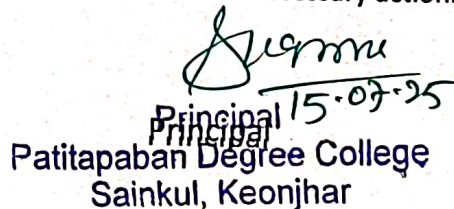 action
15.07.25
Principal
Principal
Patitapaban Degree College
Sainkul, Keonjhar